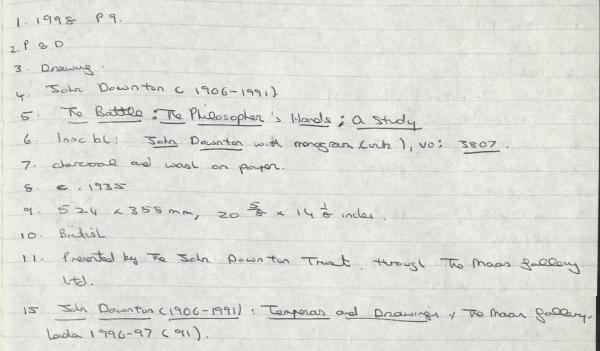 1. 1998 P9.
2. P & D
3. Drawing.
4. John Downton (1906-1991)
5. The Battle : The Philosopher's Hands ; a study
6. Insc bl: John Downton with monogram (ink), vo: 3807.
7. charcoal and wash on paper.
8. c. 1935
9. 524 x 358 mm, 20 5/8 x 14 1/8 inches.
10. British
11. Presented by The John Downton Trust, through The Maas Gallery
Ltd.
15 John Downton (1906-1991) : Temperas and Drawings, The Maas Gallery,
London 1996-97 (91).